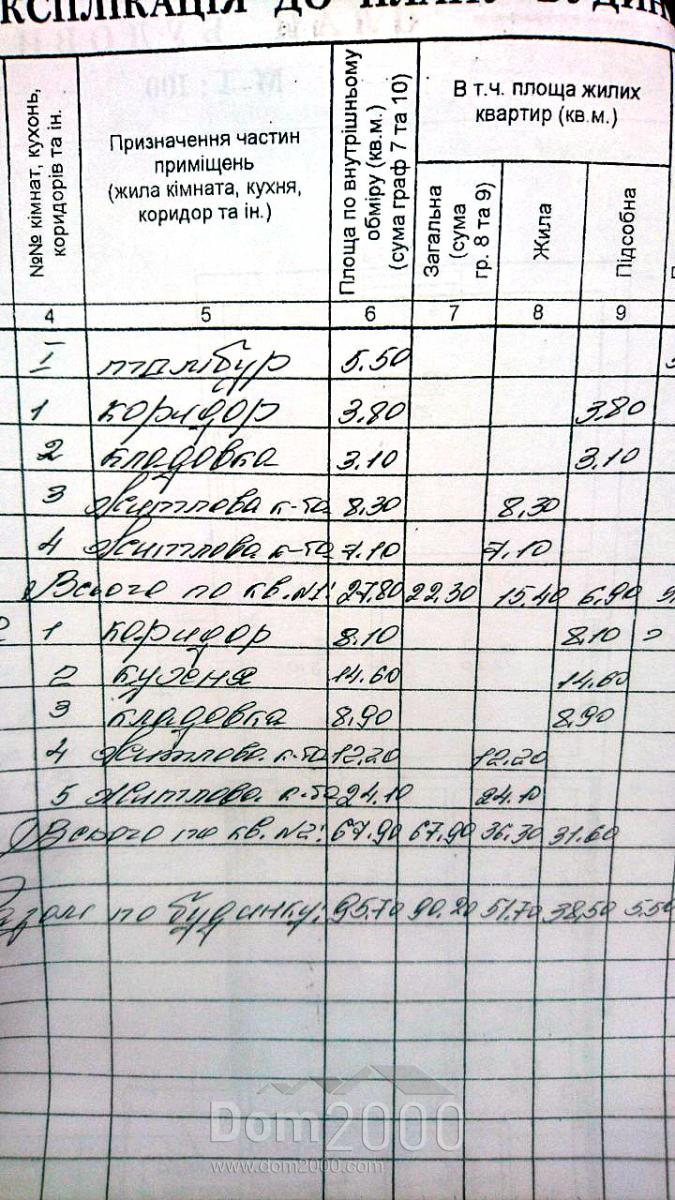 КСПЛІКАЦІЯ ДО ПЛАНУ БУДИН
№№ кімнат, кухонь, коридорів та ін.
Призначення частин
приміщень
(жила кімната, кухня,
коридор та ін.)
Площа по внутрішньому
обміру (кв.м.)
(сума граф 7 та 10)
В т.ч. площа жилих
квартир (кв.м.)
Загальна
(сума
гр. 8 та 9)
Жила
Підсобна
4 5 6 7 8 9
I тамбур 5.50
1 коридор 3.80 3.80
2 кладовка 3.10 3.10
3 житлова к-та 8.30 8.30
4 житлова к-та 7.10 7.10
Всього по кв. №1: 27.80 22.30 15.40 6.90
1 коридор 8.10 8.10
2 кухня 14.60 14.60
3 кладовка 8.90 8.90
4 житлова к-та 12.20 12.20
5 житлова к-та 24.10 24.10
Всього по кв. №2: 67.90 67.90 36.30 31.60
Разом по будинку: 95.70 90.20 51.70 38.50 5.50
Dom2000
www.dom2000.com